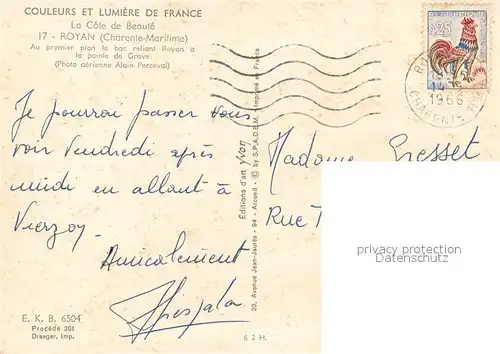 COULEURS ET LUMIÈRE DE FRANCE
La Côte de Beauté
17 - ROYAN (Charente-Maritime)
Au premier plan le bac reliant Royan à
la pointe de Grave
(Photo aérienne Alain Perceval)
Je pourrai passer vous
voir Vendredi après
midi en allant à
Vierzoy.
Amicalement
E. K. B. 6504
Procédé 301
Draeger, Imp.
6 2 H.
Éditions d'art yvon
30, Avenue Jean-Jaurès - 94 - Arcueil - © by S.P.A.D.E.M. Imprimé en France
0,25
1966
CHARENTE
Madame Gresset
Rue
privacy protection
Datenschutz
www.oldthing.de